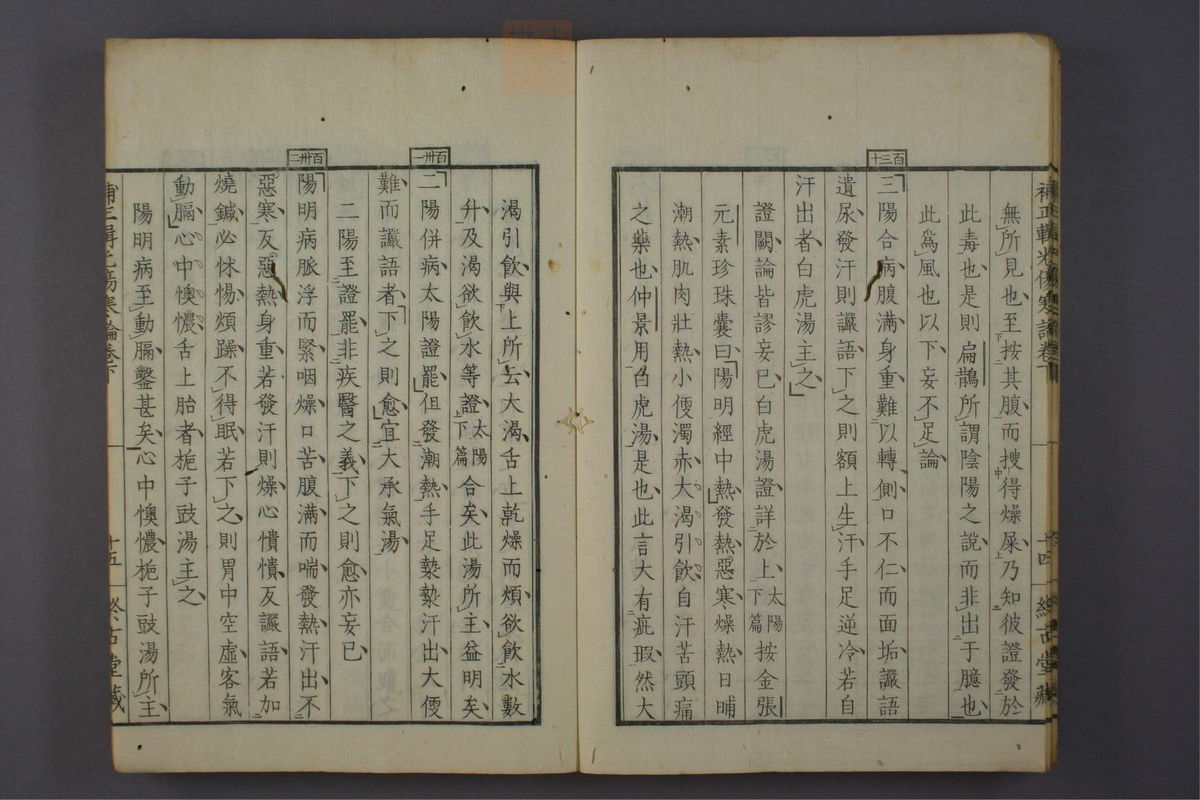 補正輯光傷寒論卷下
十四
無所見也至按其腹而搜得燥屎乃知彼證發於
此毒也是則扁鵲所謂陰陽之說而非出于臆也
此為風也以下妄不足論
百三十
三陽合病腹滿身重難以轉側口不仁而面垢讝語
遺尿發汗則讝語下之則額上生汗手足逆冷若自
汗出者白虎湯主之
證闕論皆謬妄已白虎湯證詳於上太陽下篇按金張
元素珍珠囊曰陽明經中熱發熱惡寒燥熱日晡
潮熱肌肉壯熱小便濁赤大渴引飲自汗苦頭痛
之藥也仲景用白虎湯是也此言大有疵瑕然大
渴引飲與上所云大渴舌上乾燥而煩欲飲水數
升及渴欲飲水等證太陽上下篇合矣此湯所主益明矣
百卅一
二陽併病太陽證罷但發潮熱手足漐漐汗出大便
難而讝語者下之則愈宜大承氣湯
二陽至證罷非疾醫之義下之則愈亦妄已
百卅二
陽明病脈浮而緊咽燥口苦腹滿而喘發熱汗出不
惡寒反惡熱身重若發汗則燥心憒憒反讝語若加
燒鍼必怵惕煩躁不得眠若下之則胃中空虛客氣
動膈心中懊憹舌上胎者梔子豉湯主之
陽明病至動膈鑿甚矣心中懊憹梔子豉湯所主
十五